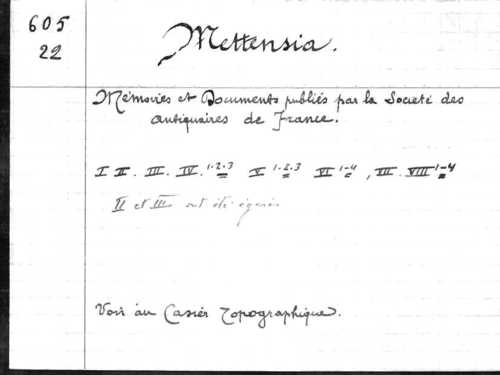 605
22
Mettensia.
Mémoires et Documents publiés par la Societé des
antiquaires de France.
I II. III. IV. 1-2-3 V 1-2-3 VI 1-4, VII. VIII 1-4
II et III ont été égarés
Voir au Casier Topographique.